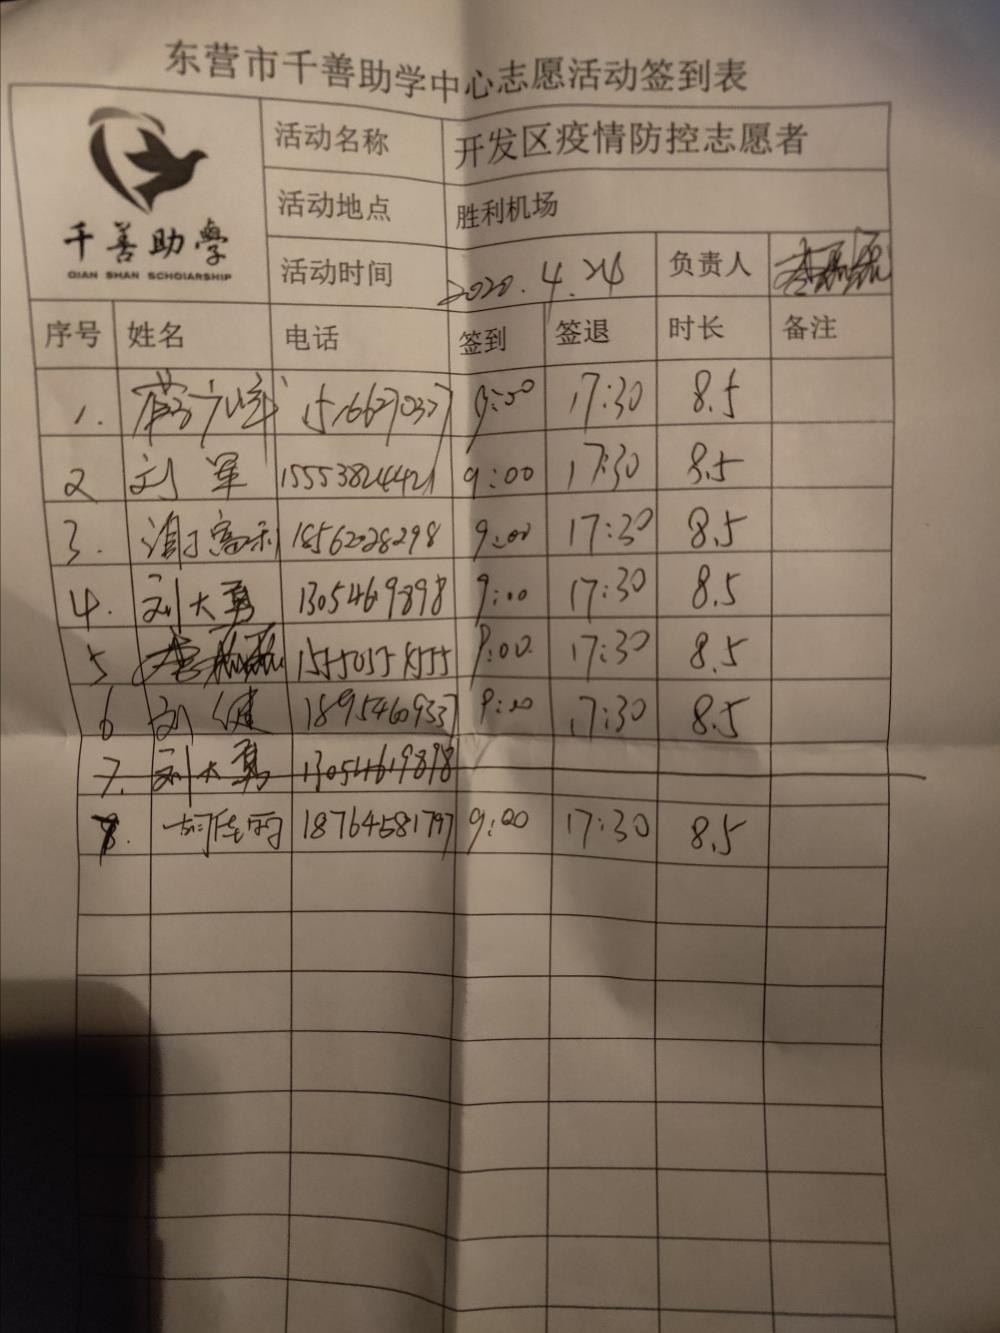 东营市千善助学中心志愿活动签到表
千善助學
QIAN SHAN SCHOIARSHIP
活动名称 开发区疫情防控志愿者
活动地点 胜利机场
活动时间 2020.4.24 负责人
序号 姓名 电话 签到 签退 时长 备注
1. 15166270327 9:00 17:30 8.5
2 刘军 15553824421 9:00 17:30 8.5
3. 18562028298 9:00 17:30 8.5
4. 刘大勇 13054619898 9:00 17:30 8.5
5 15550558555 9:00 17:30 8.5
6 刘健 18954609337 9:00 17:30 8.5
7. 刘大勇 13054619898
8. 18764581797 9:00 17:30 8.5